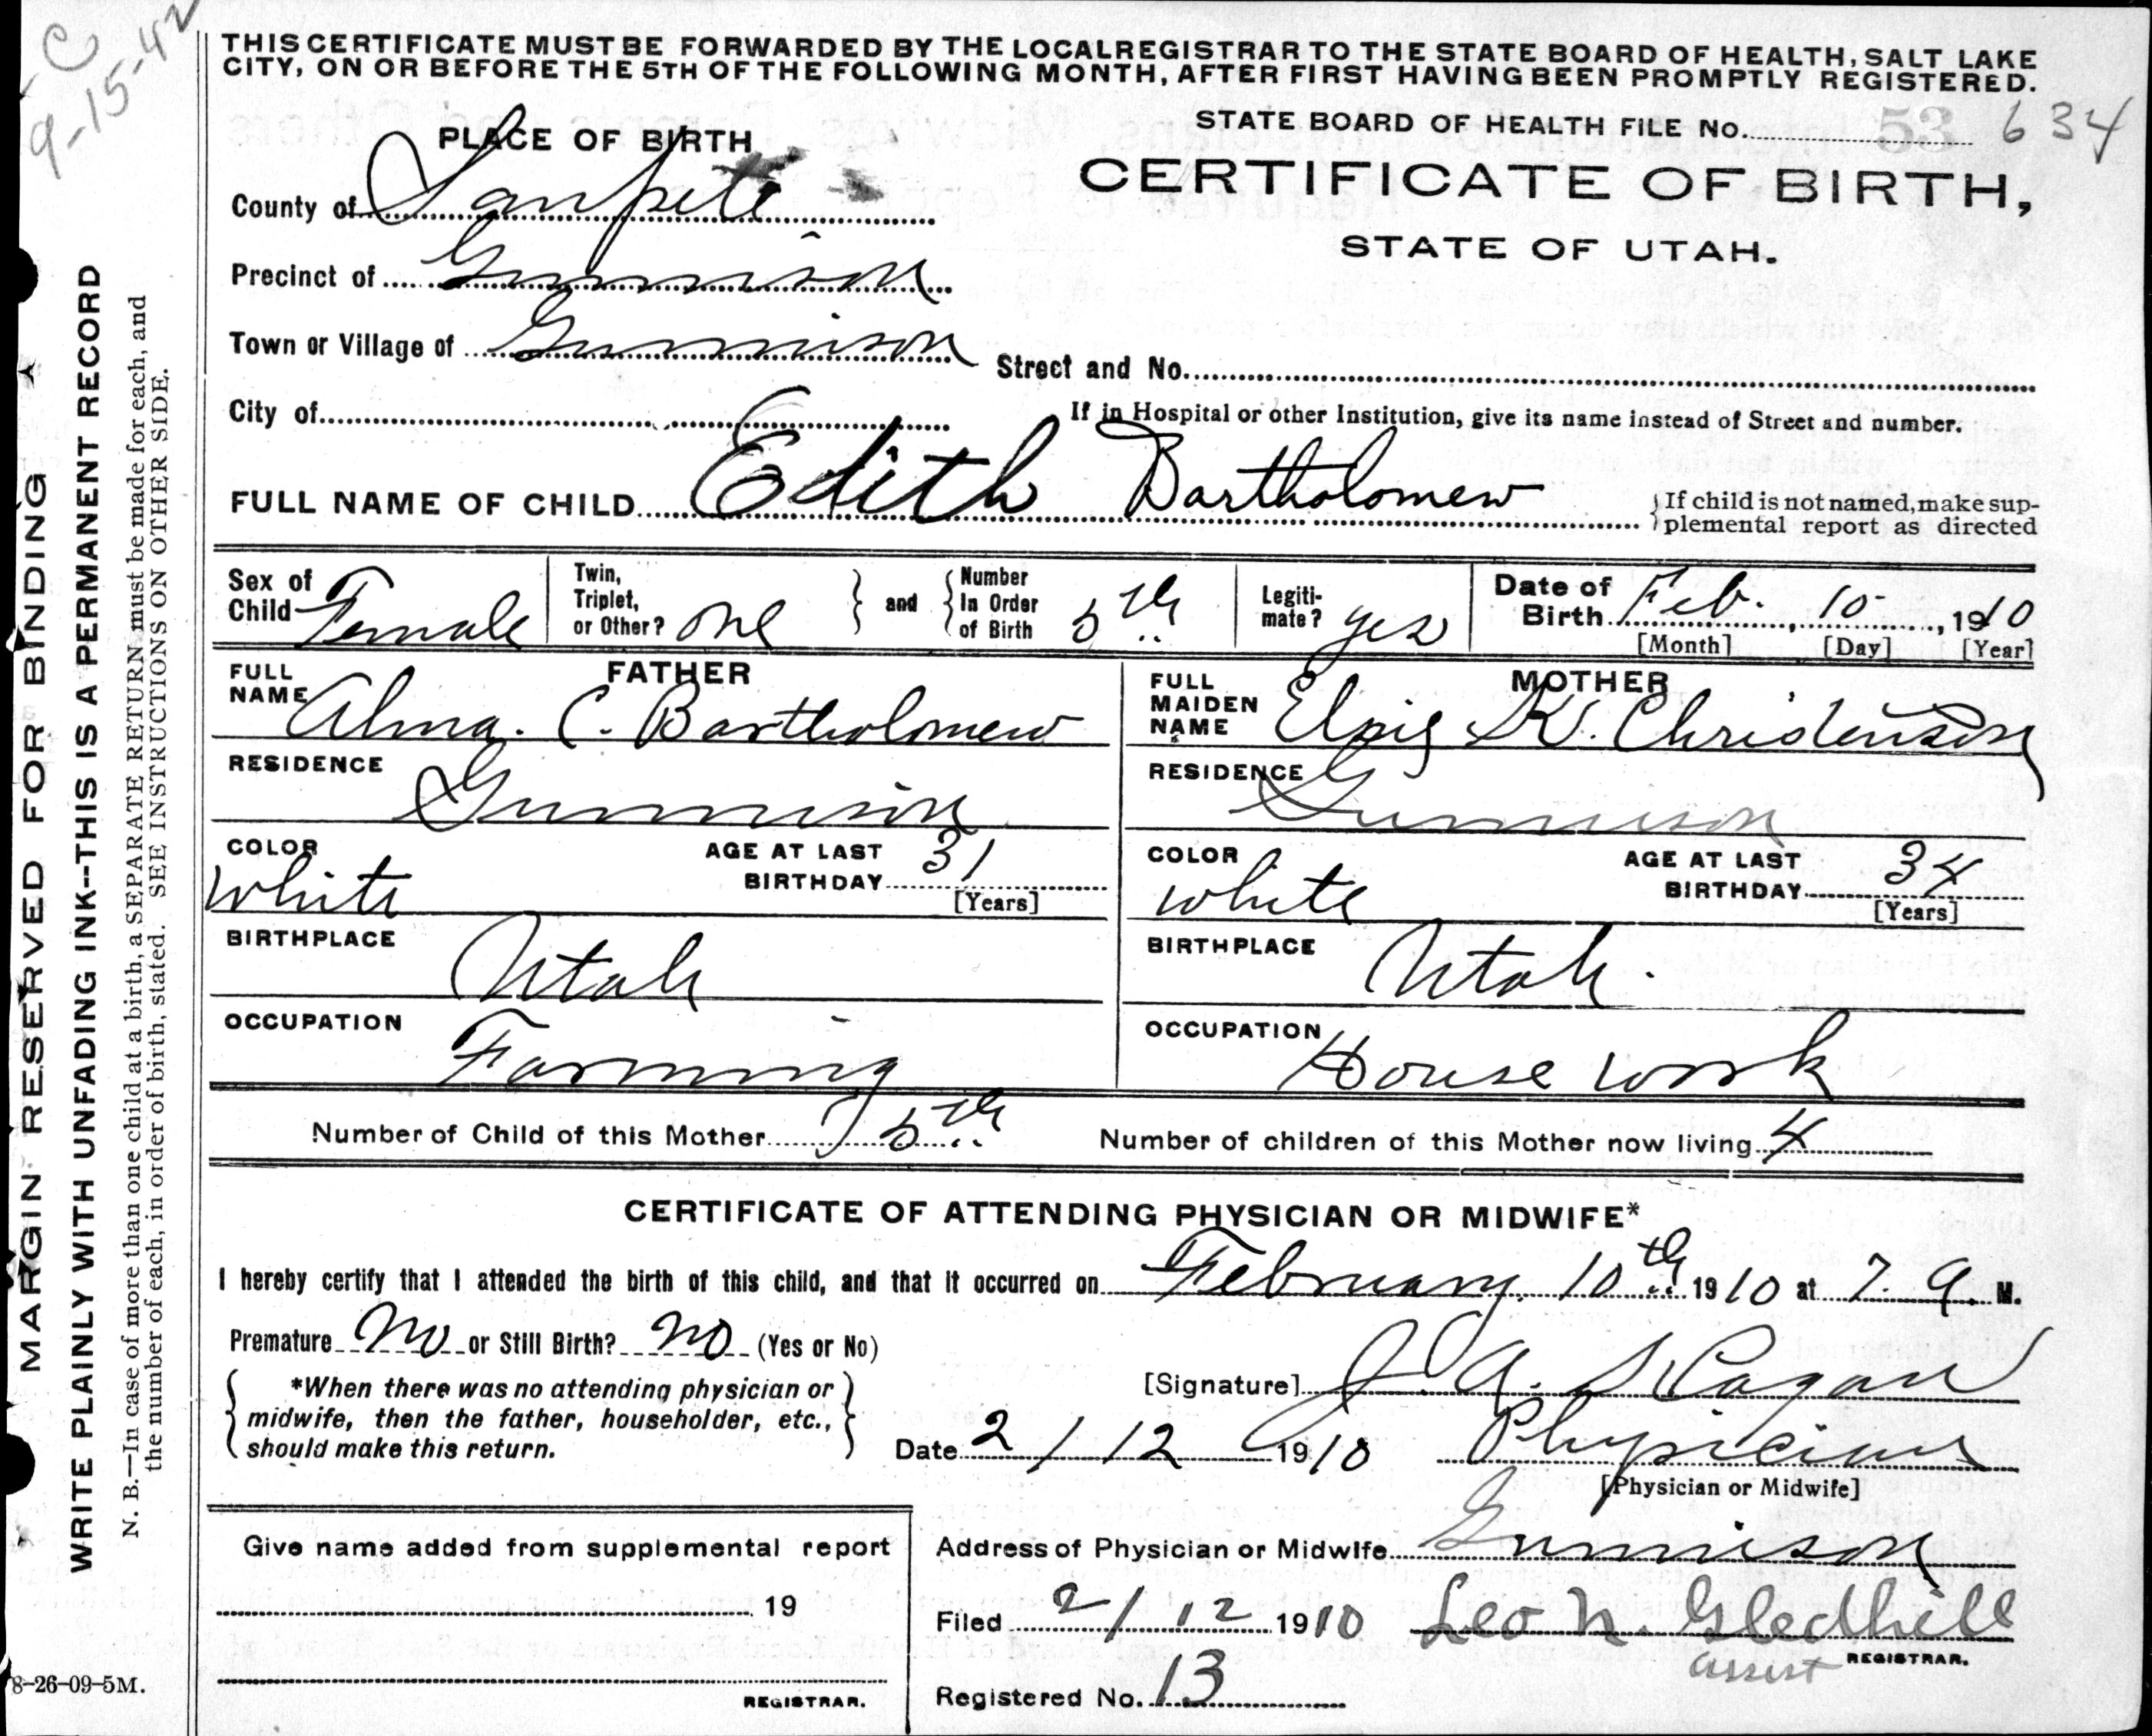 C
9-15-42
THIS CERTIFICATE MUST BE FORWARDED BY THE LOCAL REGISTRAR TO THE STATE BOARD OF HEALTH, SALT LAKE
CITY, ON OR BEFORE THE 5TH OF THE FOLLOWING MONTH, AFTER FIRST HAVING BEEN PROMPTLY REGISTERED.
STATE BOARD OF HEALTH FILE No. 53 634
PLACE OF BIRTH
CERTIFICATE OF BIRTH,
STATE OF UTAH.
County of Sanpete
Precinct of Gunnison
Town or Village of Gunnison
Street and No.
City of
If in Hospital or other Institution, give its name instead of Street and number.
FULL NAME OF CHILD Edith Bartholomew
{If child is not named, make sup-
plemental report as directed
Sex of Child Female
Twin, Triplet, or Other? one } and { Number In Order of Birth 5th
Legiti-mate? yes
Date of Birth Feb. 10, 1910
[Month] [Day] [Year]
FATHER
FULL NAME Alma. C. Bartholomew
RESIDENCE Gunnison
COLOR white
AGE AT LAST BIRTHDAY 31
[Years]
BIRTHPLACE Utah
OCCUPATION Farming
MOTHER
FULL MAIDEN NAME K. Christenson
RESIDENCE Gunnison
COLOR white
AGE AT LAST BIRTHDAY 34
[Years]
BIRTHPLACE Utah.
OCCUPATION House work
Number of Child of this Mother 5th
Number of children of this Mother now living 4
CERTIFICATE OF ATTENDING PHYSICIAN OR MIDWIFE*
I hereby certify that I attended the birth of this child, and that it occurred on February 10th 1910 at 7. a. M.
Premature No or Still Birth? no (Yes or No)
*When there was no attending physician or
midwife, then the father, householder, etc.,
should make this return.
[Signature] J. A.
Date 2/12 1910
Physician
[Physician or Midwife]
Address of Physician or Midwife Gunnison
Filed 2/12 1910 Leo N. Gledhill
assist REGISTRAR.
Registered No. 13
Give name added from supplemental report
19
REGISTRAR.
8-26-09-5M.
MARGIN RESERVED FOR BINDING
WRITE PLAINLY WITH UNFADING INK--THIS IS A PERMANENT RECORD
N. B.—In case of more than one child at a birth, a SEPARATE RETURN must be made for each, and
the number of each, in order of birth, stated. SEE INSTRUCTIONS ON OTHER SIDE.